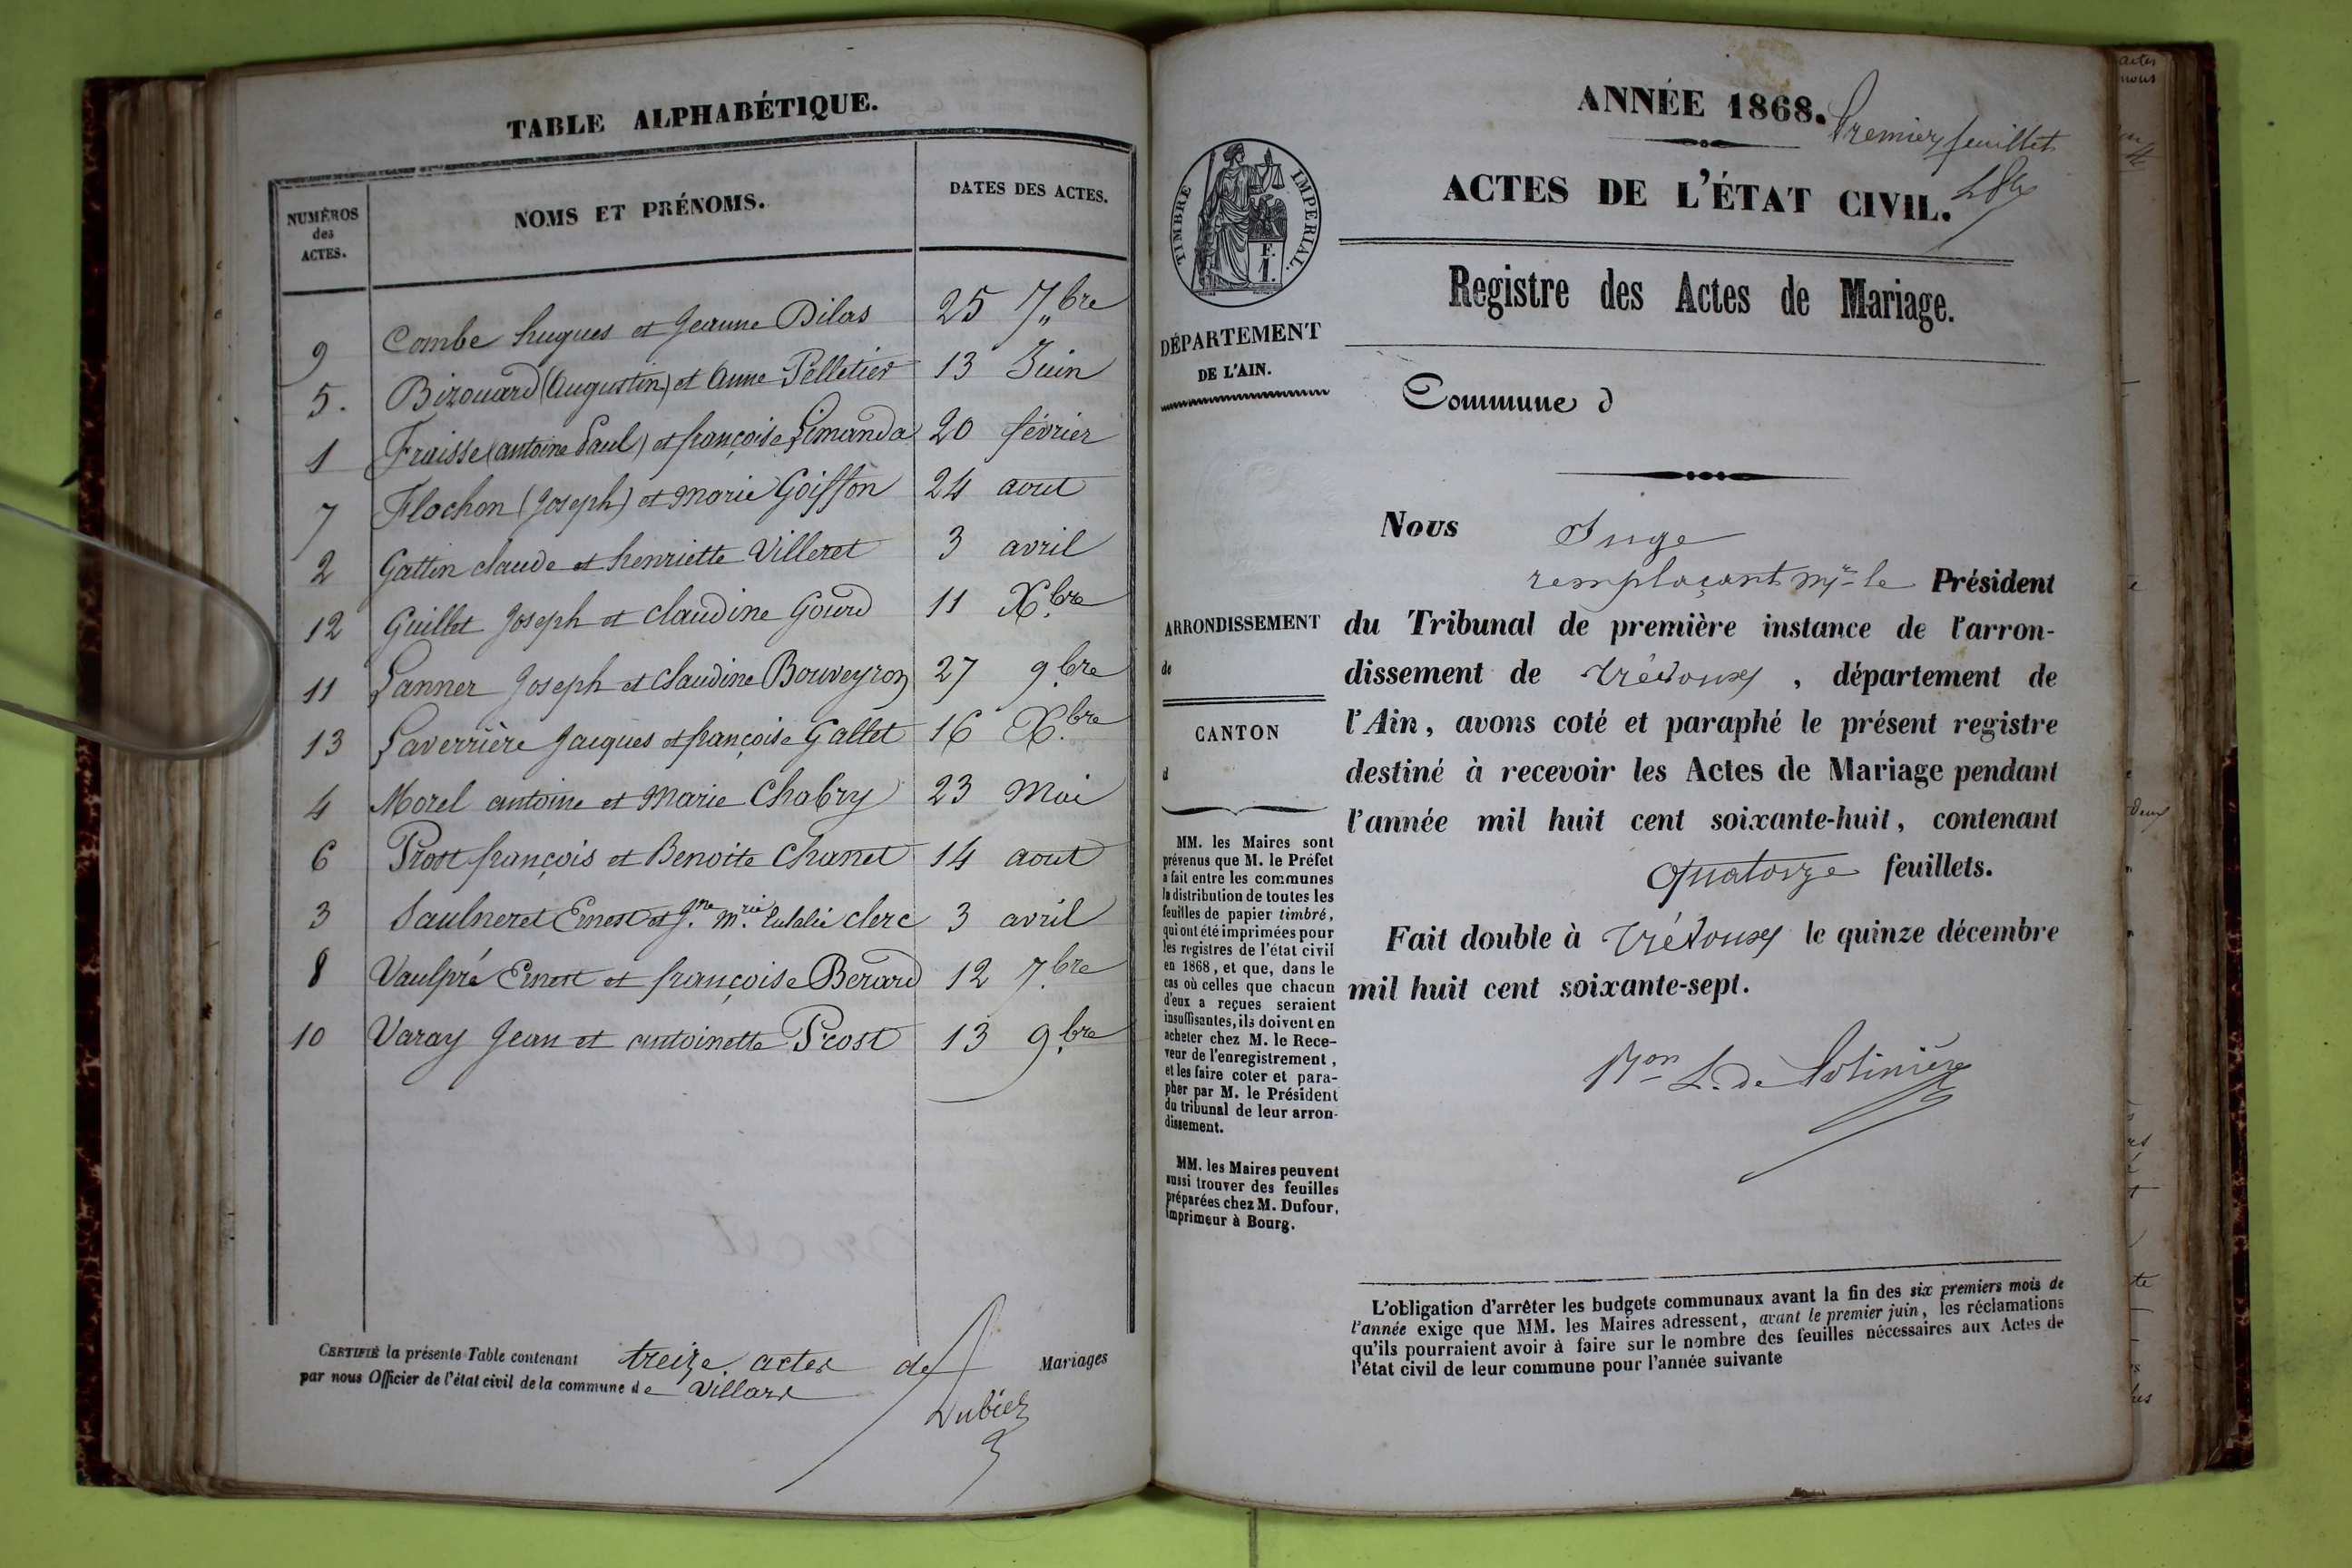 TABLE ALPHABÉTIQUE.
NUMÉROS des ACTES.
NOMS ET PRÉNOMS.
DATES DES ACTES.
9 Combe hugues et Jeanne Dilas 25 7bre
5. Bizouard (Augustin) et Anne Pelletier 13 Juin
1 Fraisse (antoine Paul) et françoise Limanda 20 février
7 Flochon (Joseph) et Marie Goiffon 24 aout
2 Gattin claude et henriette Villeret 3 avril
12 Guillet Joseph et claudine Gourd 11 Xbre
11 Lanner Joseph et claudine Bouveyron 27 9bre
13 Laverrière Jacques et françoise Gallet 16 Xbre
4 Morel antoine et Marie Chabry 23 Mai
6 Prost françois et Benoite Chanet 14 aout
3 Saulneret Ernest et Jne mrie Eulalie clerc 3 avril
8 Vaulpré Ernest et françoise Berard 12 7bre
10 Varay Jean et antoinette Prost 13 9bre
CERTIFIÉ la présente Table contenant treize actes de Mariages
par nous Officier de l'état civil de la commune de Villars
Dubiez
ANNÉE 1868.
Premier feuillet
ACTES DE L'ÉTAT CIVIL.
TIMBRE IMPERIAL.
F.
1.
Registre des Actes de Mariage.
DÉPARTEMENT
DE L'AIN.
Commune d
Nous Juge
remplaçant Mr le Président
ARRONDISSEMENT
de
CANTON
d
du Tribunal de première instance de l'arron-
dissement de Trévoux, département de
l'Ain, avons coté et paraphé le présent registre
destiné à recevoir les Actes de Mariage pendant
l'année mil huit cent soixante-huit, contenant
quatorze feuillets.
Fait double à Trévoux le quinze décembre
mil huit cent soixante-sept.
Bon L. de
MM. les Maires sont
prévenus que M. le Préfet
a fait entre les communes
la distribution de toutes les
feuilles de papier timbré,
qui ont été imprimées pour
les registres de l'état civil
en 1868, et que, dans le
cas où celles que chacun
d'eux a reçues seraient
insuffisantes, ils doivent en
acheter chez M. le Rece-
veur de l'enregistrement,
et les faire coter et para-
pher par M. le Président
du tribunal de leur arron-
dissement.
MM. les Maires peuvent
aussi trouver des feuilles
préparées chez M. Dufour,
imprimeur à Bourg.
L'obligation d'arrêter les budgets communaux avant la fin des six premiers mois de
l'année exige que MM. les Maires adressent, avant le premier juin, les réclamations
qu'ils pourraient avoir à faire sur le nombre des feuilles nécessaires aux Actes de
l'état civil de leur commune pour l'année suivante